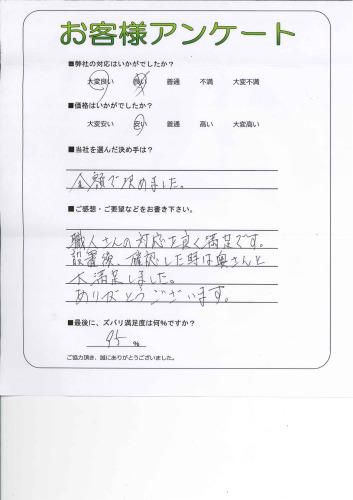 お客様アンケート
■弊社の対応はいかがでしたか？
大変良い 良い 普通 不満 大変不満
■価格はいかがでしたか？
大変安い 安い 普通 高い 大変高い
■当社を選んだ決め手は？
金額で決めました。
■ご感想・ご要望などをお書き下さい。
職人さんの対応を良く満足です。
設置後、確認した時は奥さんと
大満足しました。
ありがとうございます。
■最後に、ズバリ満足度は何％ですか？
95 %
ご協力頂き、誠にありがとうございました。